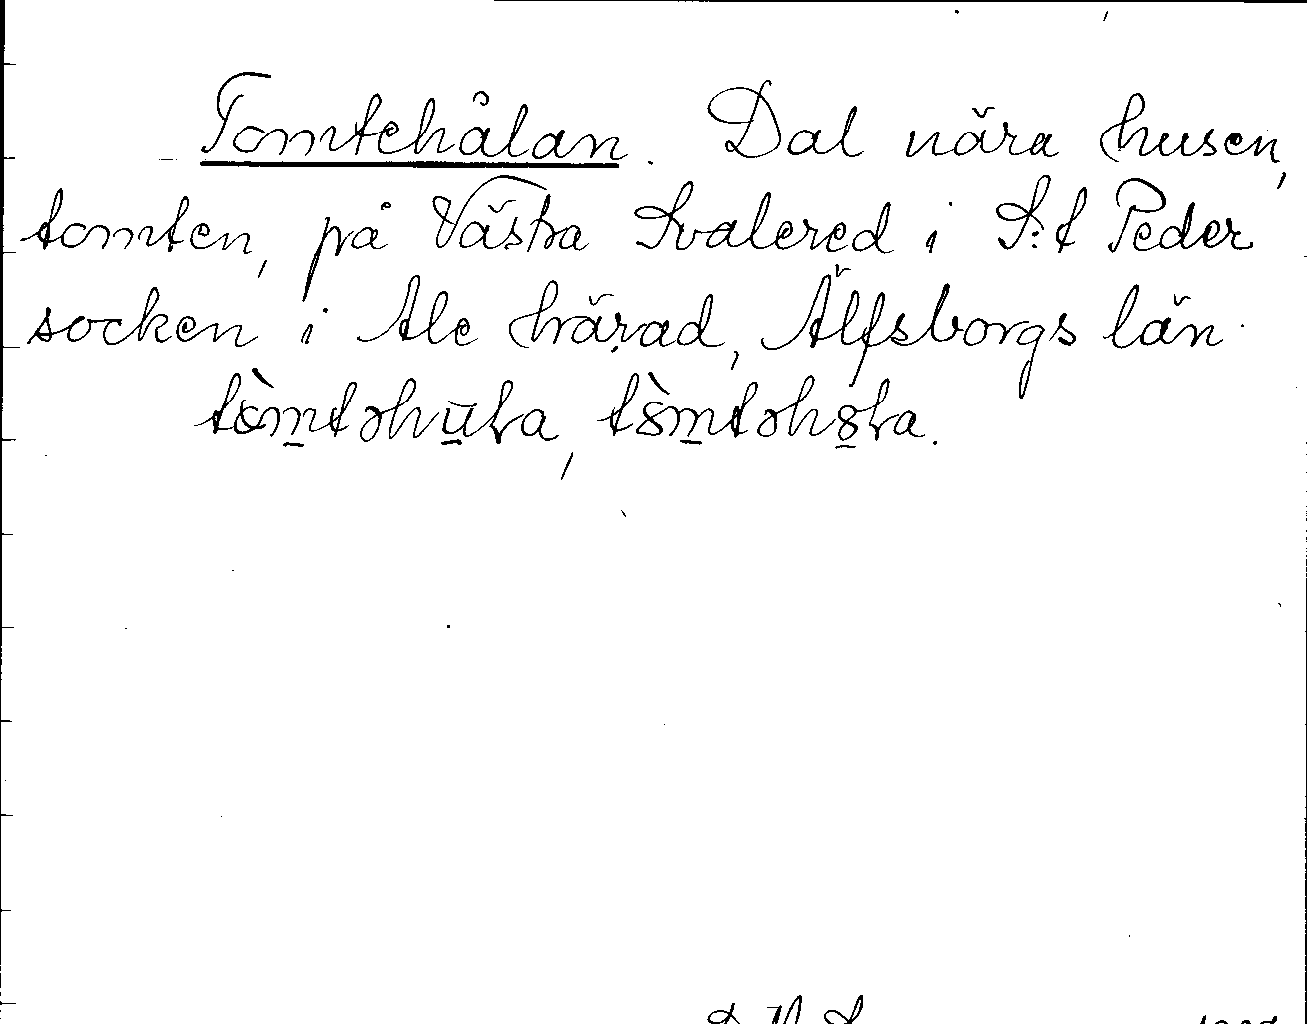 Tomtehålan. Dal nära husen,
tomten, på Västra Svalered i S:t Peder
socken i Ale härad, Älfsborgs län.